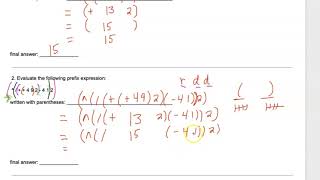 = (+ 13 2)
= ( 15 )
= 15
final answer: 15
2. Evaluate the following prefix expression:
r d d
written with parentheses: (^(/(+(+49)2)(-41))2)
= (^(/(+ 13 2)(-41))2)
= (^(/ 15 (-41))2)
=
final answer: